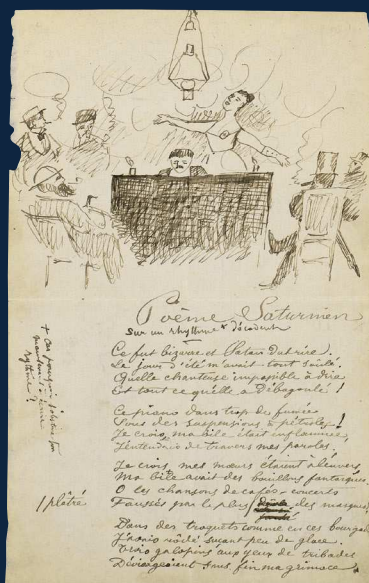 Poème Saturnien
Sur un rhythme + décadent
Ce fut bizarre et Satan dut rire.
Ce jour d'été m'avait tout soûlé.
Quelle chanteuse impossible à dire
Et tout ce qu'elle a Débagoulé !
Ce piano dans trop de fumée
Sous des suspensions à pétroles !
Je crois, ma bile était enflammée,
J'entendais de travers mes paroles.
Je crois, mes mœurs étaient à l'envers,
Ma bile avait des bouillons fantasques.
O les chansons de cafés-concerts
Faussés par le plus des masques !
/ plâtré
Dans des troquets comme en ces bourgades
J'avais rôdé suçant peu de glace.
Trois galopins aux yeux de tribades
Dévisageaient sans fin ma grimace.